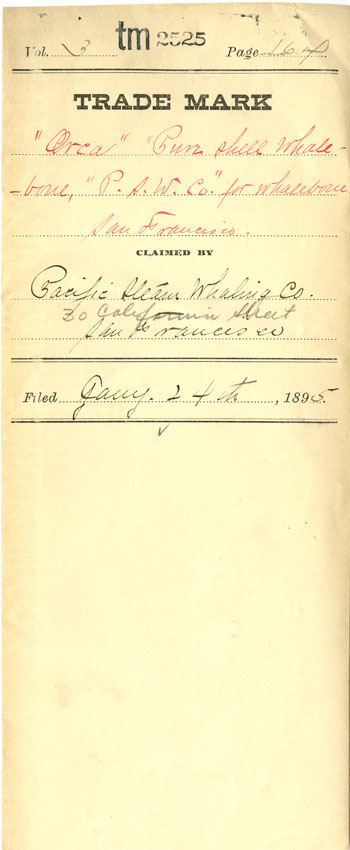 Vol. 3 tm 2525 Page 164
TRADE MARK
"Orca" "Pure shell Whale-
-bone," "P. S. W. Co." for whalebone
San Francisco.
CLAIMED BY
Pacific Steam Whaling Co.
30 California Street
San Francisco
Filed Jany. 24th, 1895.